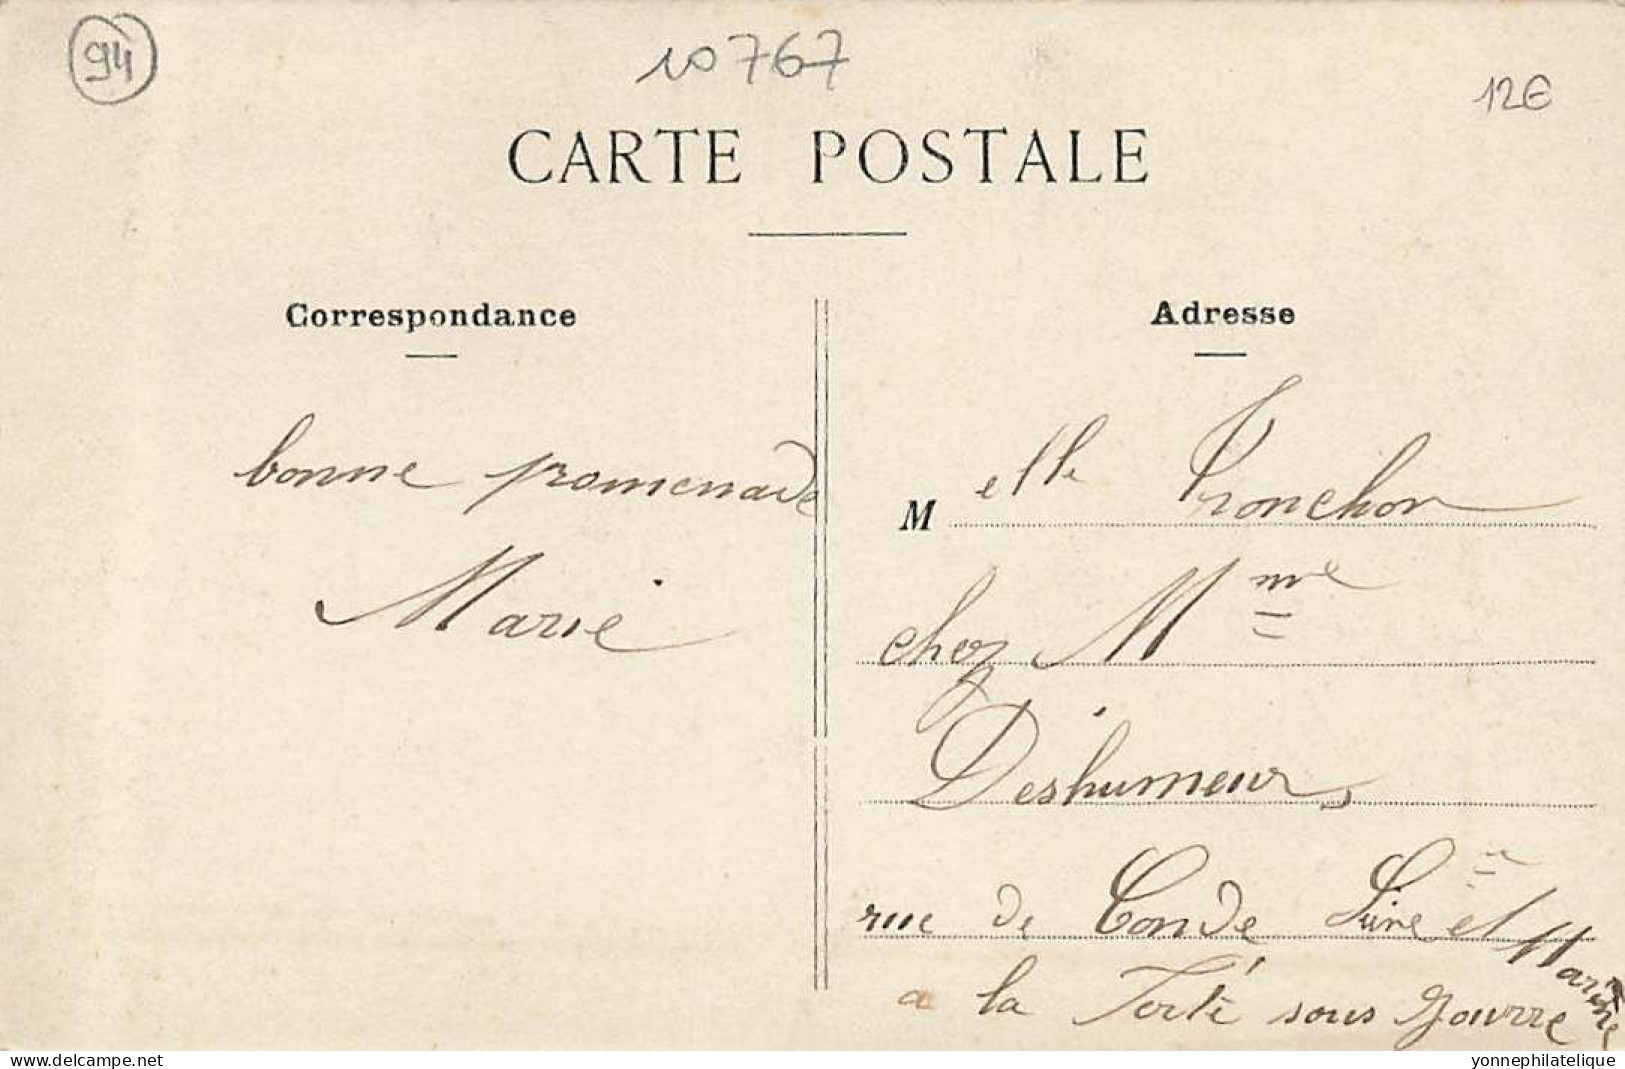 94
10767
12€
CARTE POSTALE
Correspondance
Adresse
bonne promenade
Marie
M elle Tronchon
chez Mme
Deshumeur,
rue de Condé Seine et Marne
a la Ferté sous Jouarre
yonnephilatelique